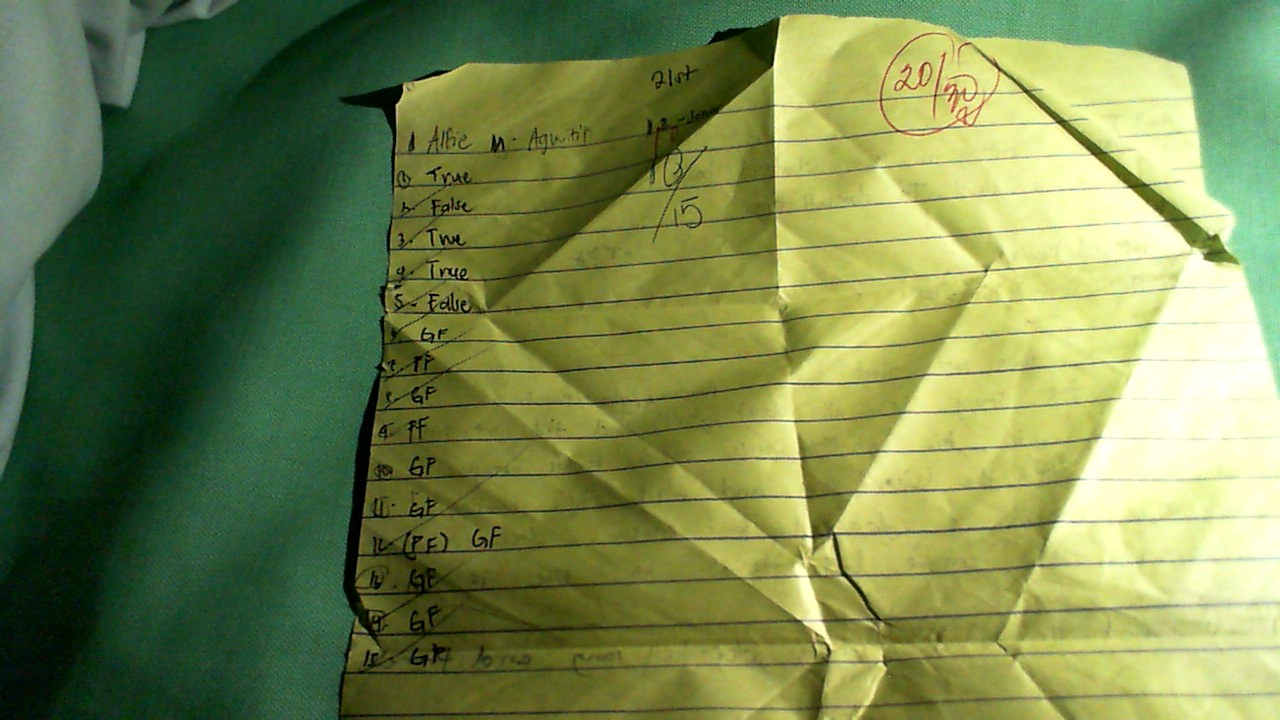 21st
20/30
Alfie M. Agustin
13/15
1 True
2. False
3. True
4. True
5. False
6 GF
7 PF
8. GF
9. PF
10. GF
11. GF
12. (PF) GF
13. GF
14. GF
15. GF